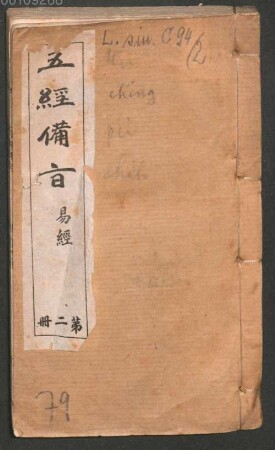 00109266
L. sin. C 94/2
五經備旨
易經
冊二第
ching
pei
chih
79